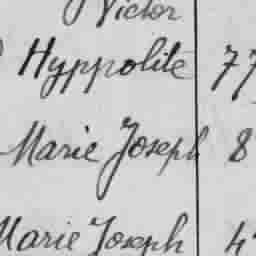 Victor
Hyppolite 77
Marie Joseph 8
Marie Joseph 4